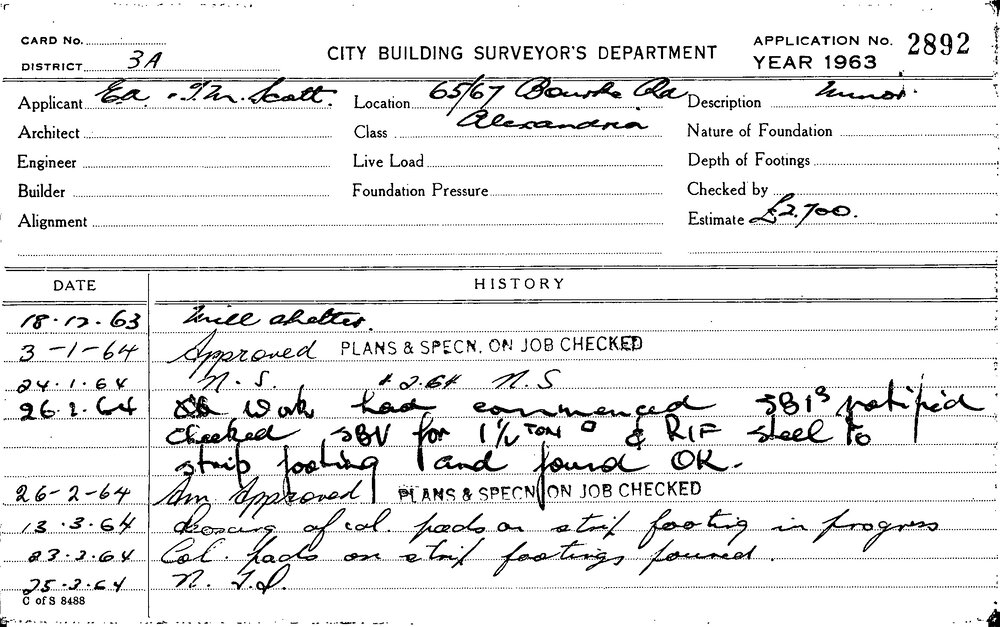 CARD No.
DISTRICT 3A
CITY BUILDING SURVEYOR'S DEPARTMENT
APPLICATION No. 2892
YEAR 1963
Applicant T.M. Scott.
Location 65/67 Bourke Rd
Alexandria
Description Minor.
Architect
Class
Nature of Foundation
Engineer
Live Load
Depth of Footings
Builder
Foundation Pressure
Checked by
Alignment
Estimate £2,700.
DATE HISTORY
18.12.63 Mill shelter.
3-1-64 Approved PLANS & SPECN. ON JOB CHECKED
24.1.64 N.S. 2.64 N.S
26.2.64 work had commenced notified
Checked SBV for 1½ TON & RIF steel to
strip footing and found OK.
26-2-64 Am. Approved PLANS & SPECN ON JOB CHECKED
13.3.64 of col. pads on strip footing in progress
23.3.64 Col. pads on strip footings poured.
25.3.64 N.
C of S 8488